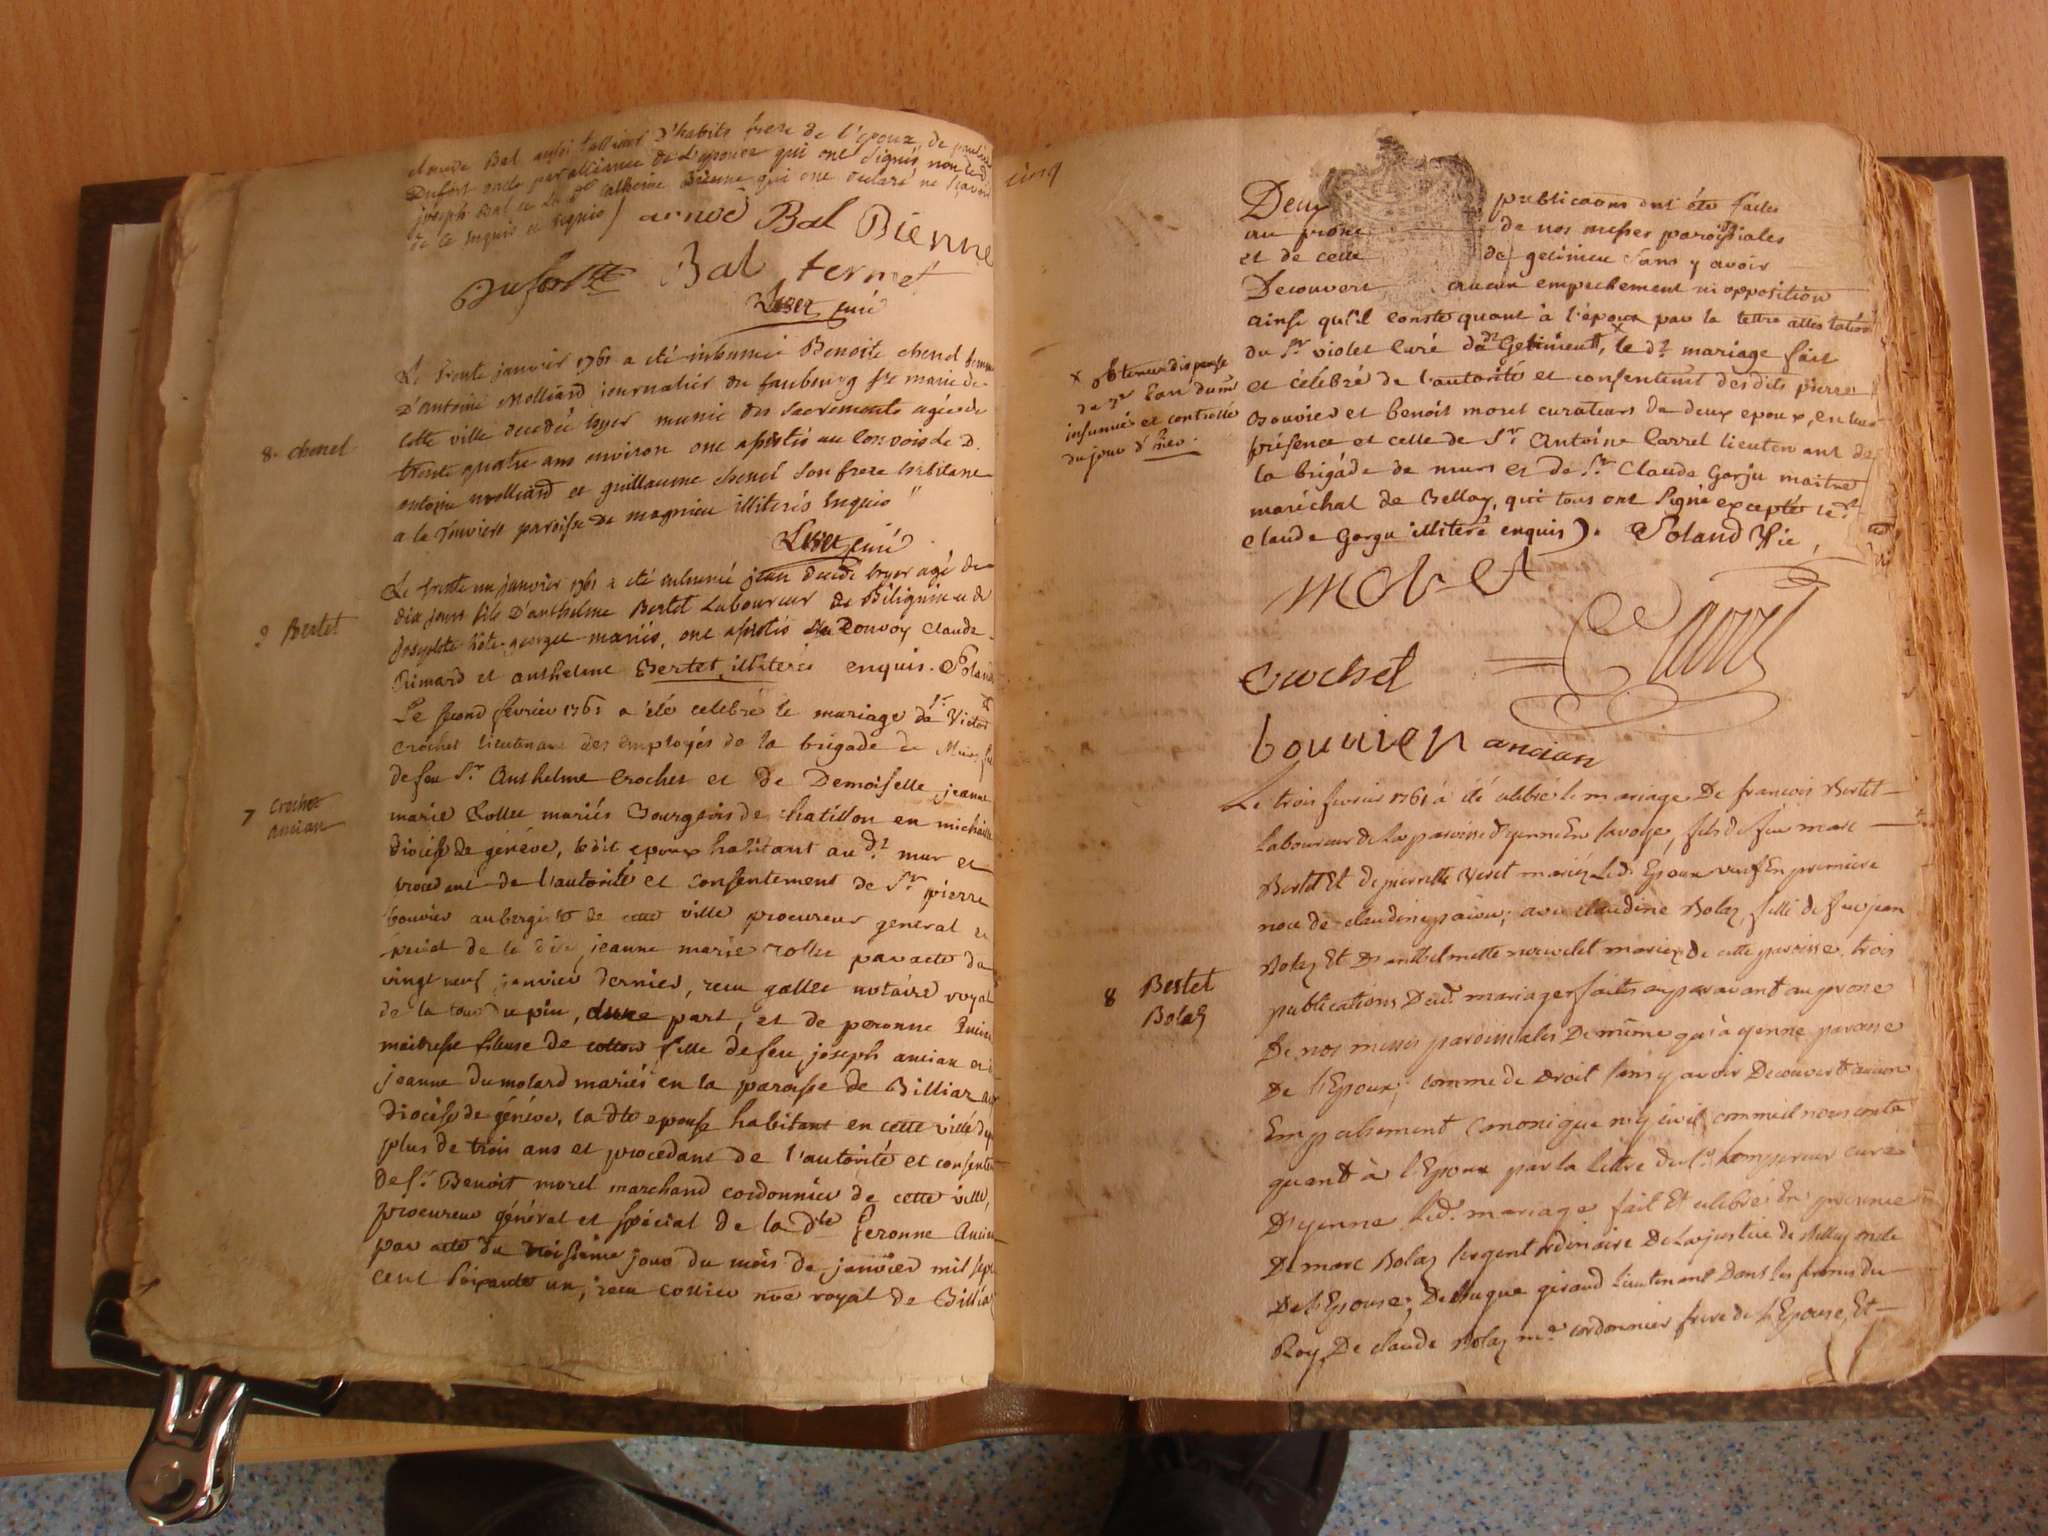 claude Bal aussi tailleur d'habits frere de l'epoux, de
Dufort oncle par alliance de l'epouse qui ont signés non led.
joseph Bal et La d.te Bienne qui ont declaré ne sçavoir
de ce enquis et requis / Bal Bienne
Bal ternet
curé
Le trente janvier 1761 a été inhumée Benoite chenel femme
D'antoine Molliard journalier du faubourg ste marie de
cette ville decedée hyer munie des sacrements agée de
8 chenel
trente quatre ans environ ont assistés au Convois le D.
antoine molliard et guillaume chenel son frere habitant
a la paroisse de magnieu illiterés enquis
curé
Le trente un janvier 1761 a été inhumé jean decedé hyer agé de
dix jours fils D'anthelme Bertet Laboureur de Biliguieu et de
9 Bertet
mariés, ont assistés au Convoy Claude
Rimard et anthelme Bertet illiterés enquis.
Le second fevrier 1761 a été celebré le mariage de Sr. Victor
crochet lieutenant des employés de la brigade de
de feu Sr. Anthelme Crochet et de Demoiselle jeanne
7 crochet
ancian
marie Rollet mariés Bourgeois de chatillon en michaille
diocèse de géneve, ledit epoux habitant au dt mur et
procedant de l'autorité et consentement de Sr. pierre
bouvier aubergiste de cette ville procureur general et
special de la dite jeanne marie rollet par acte du
vingt neuf janvier dernier, recu gallet notaire royal
de la tour du pin, d'une part, et de peronne
maitresse fileuse de cotton fille de feu joseph ancian et de
jeanne dumolard mariés en la paroisse de Billiaz
diocèse de généve, la dte epouse habitant en cette ville depuis
plus de trois ans et procedant de l'autorité et consentement
de Sr. Benoit morel marchand cordonnier de cette ville,
procureur général et spécial de la dte Peronne Ancian
par acte du troisieme jour du mois de janvier mil sept
cent soixante un, recu cossieu nre royal de Billiaz
cinq
Deux publicaons ont été faites
au prone de nos messes paroissiales
et de celle de gelinieu sans y avoir
Decouvert aucun empechement ni opposition
ainsi qu'il conste quant à l'époux par la lettre attestation
du Sr. violet Curé dudt Gelinieu, le dt mariage fait
x obtenue dispense
de 3e ban dument
insinuée et controllée
du jour d'hier.
et célébré de l'autorité et consentement desdits pierre
Bouvier et benoit morel curateurs de deux epoux, en leur
présence et celle de Sr. Antoine Carrel lieutenant de
la brigade de murs et de Sr. Claude Gorju maitre
maréchal de Belley, qui tous ont signé exceptés le dt.
claude Gorju illiteré enquis). Roland Vic.
morel
Crochet
bouvier ancian
Le trois fevrier 1761 à été celebré le mariage De francois Bertet
Laboureur de La paroisse d'yenne En savoye, fils de feu marc
Bertet Et de pierrette Veret mariés Led. Epoux veuf En premiere
noce de claudine ; avec claudine Bolaz fille de feu jean
Bolaz Et D'anthelmette mariez de cette paroisse. trois
8 Bertet
Bolaz
publications Dud. mariage faites auparavant au prone
De nos messes paroissiales De même qu'à yenne paroisse
De l'Epoux; comme de droit sans y avoir Decouvert aucun
Empechement Canonique ny civil comme il nous conste
quant à l'Epoux par la lettre du Sr. curé
D'yenne Led. mariage fait Et celebré En presence
De marc Bolaz sergent ordinaire De La justice de Belley oncle
De l'Epouse; De hugue giraud lieutenant Dans les fermes du
Roy, De claude Bolaz me. cordonnier frere de l'Epouse, Et